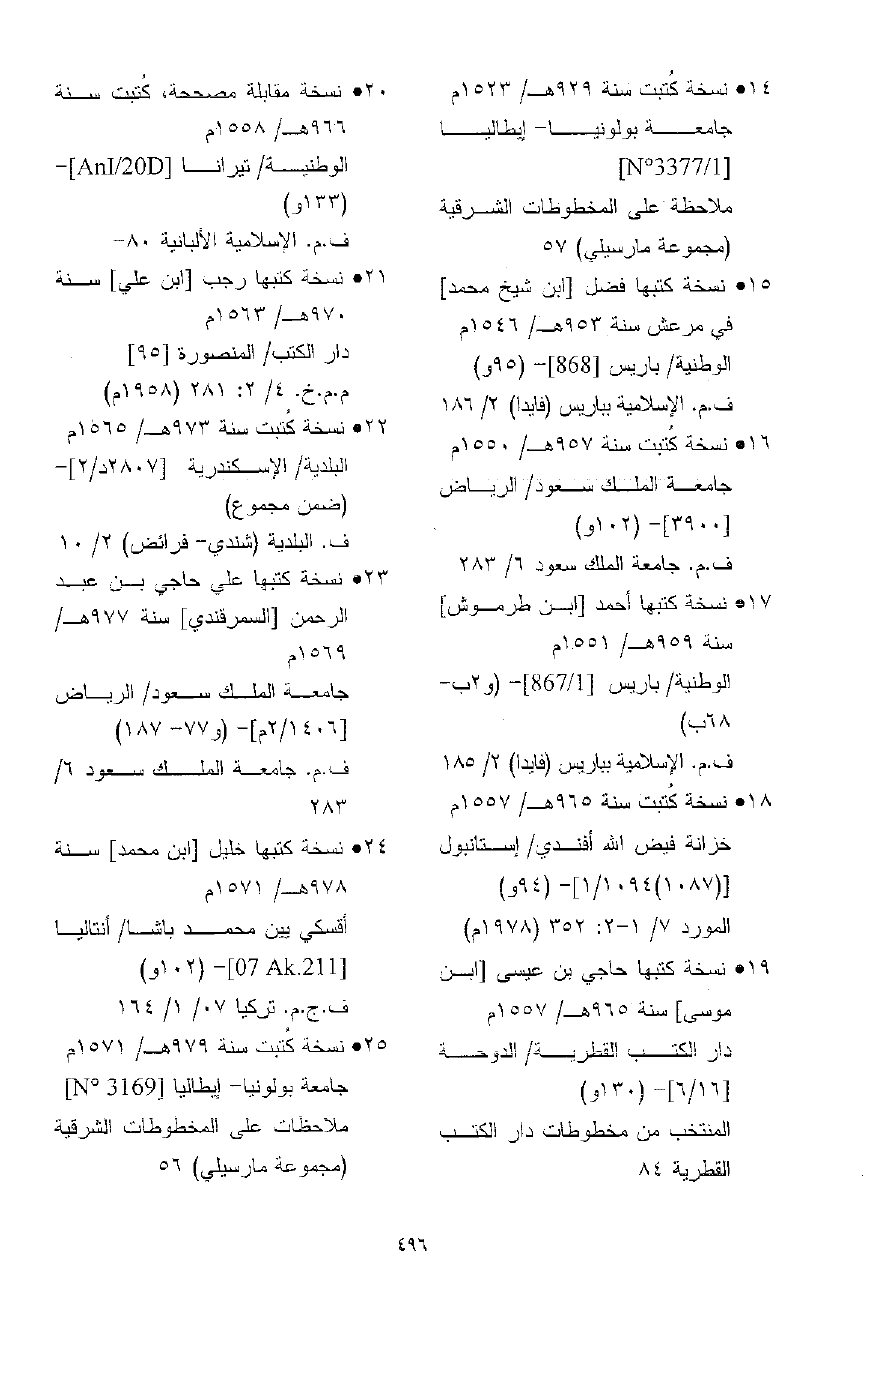 ١٤● نسخة كُتبت سنة ٩٢٩هـ/ ١٥٢٣م
جامعة بولونيا- إيطاليا
[N°3377/1]
ملاحظة على المخطوطات الشرقية
(مجموعة مارسيلي) ٥٧
١٥● نسخة كتبها فضل [ابن شيخ محمد]
في مرعش سنة ٩٥٣هـ/ ١٥٤٦م
الوطنية/ باريس [868]- (٩٥و)
ف.م. الإسلامية بباريس (فايدا) ٢/ ١٨٦
١٦● نسخة كُتبت سنة ٩٥٧هـ/ ١٥٥٠م
جامعة الملك سعود/ الرياض
[٣٩٠٠]- (١٠٢و)
ف.م. جامعة الملك سعود ٦/ ٢٨٣
١٧● نسخة كتبها أحمد [ابن طرموش]
سنة ٩٥٩هـ/ ١٥٥١م
الوطنية/ باريس [867/1]- (و٢ب-
٦٨ب)
ف.م. الإسلامية بباريس (فايدا) ٢/ ١٨٥
١٨● نسخة كُتبت سنة ٩٦٥هـ/ ١٥٥٧م
خزانة فيض الله أفندي/ إستانبول
[(١٠٨٧)١/١٠٩٤]- (٩٤و)
المورد ٧/ ١-٢: ٣٥٢ (١٩٧٨م)
١٩● نسخة كتبها حاجي بن عيسى [ابن
موسى] سنة ٩٦٥هـ/ ١٥٥٧م
دار الكتب القطرية/ الدوحة
[٦/١٦]- (١٣٠و)
المنتخب من مخطوطات دار الكتب
القطرية ٨٤
٢٠● نسخة مقابلة مصححة، كُتبت سنة
٩٦٦هـ/ ١٥٥٨م
الوطنية/ تيرانا [AnI/20D]-
(١٣٣و)
ف.م. الإسلامية الألبانية ٨٠-
٢١● نسخة كتبها رجب [ابن علي] سنة
٩٧٠هـ/ ١٥٦٣م
دار الكتب/ المنصورة [٩٥]
م.م.خ. ٤/ ٢: ٢٨١ (١٩٥٨م)
٢٢● نسخة كُتبت سنة ٩٧٣هـ/ ١٥٦٥م
البلدية/ الإسكندرية [٢٨٠٧د/٢]-
(ضمن مجموع)
ف. البلدية (شندي- فرائض) ٢/ ١٠
٢٣● نسخة كتبها علي حاجي بن عبد
الرحمن [السمرقندي] سنة ٩٧٧هـ/
١٥٦٩م
جامعة الملك سعود/ الرياض
[٢/١٤٠٦م]- (و٧٧- ١٨٧)
ف.م. جامعة الملك سعود ٦/
٢٨٣
٢٤● نسخة كتبها خليل [ابن محمد] سنة
٩٧٨هـ/ ١٥٧١م
أفسكي بين محمد باشا/ أنتاليا
[07 Ak.211]- (١٠٢و)
ف.ج.م. تركيا ٠٧/ ١/ ١٦٤
٢٥● نسخة كُتبت سنة ٩٧٩هـ/ ١٥٧١م
جامعة بولونيا- إيطاليا [N° 3169]
ملاحظات على المخطوطات الشرقية
(مجموعة مارسيلي) ٥٦
٤٩٦